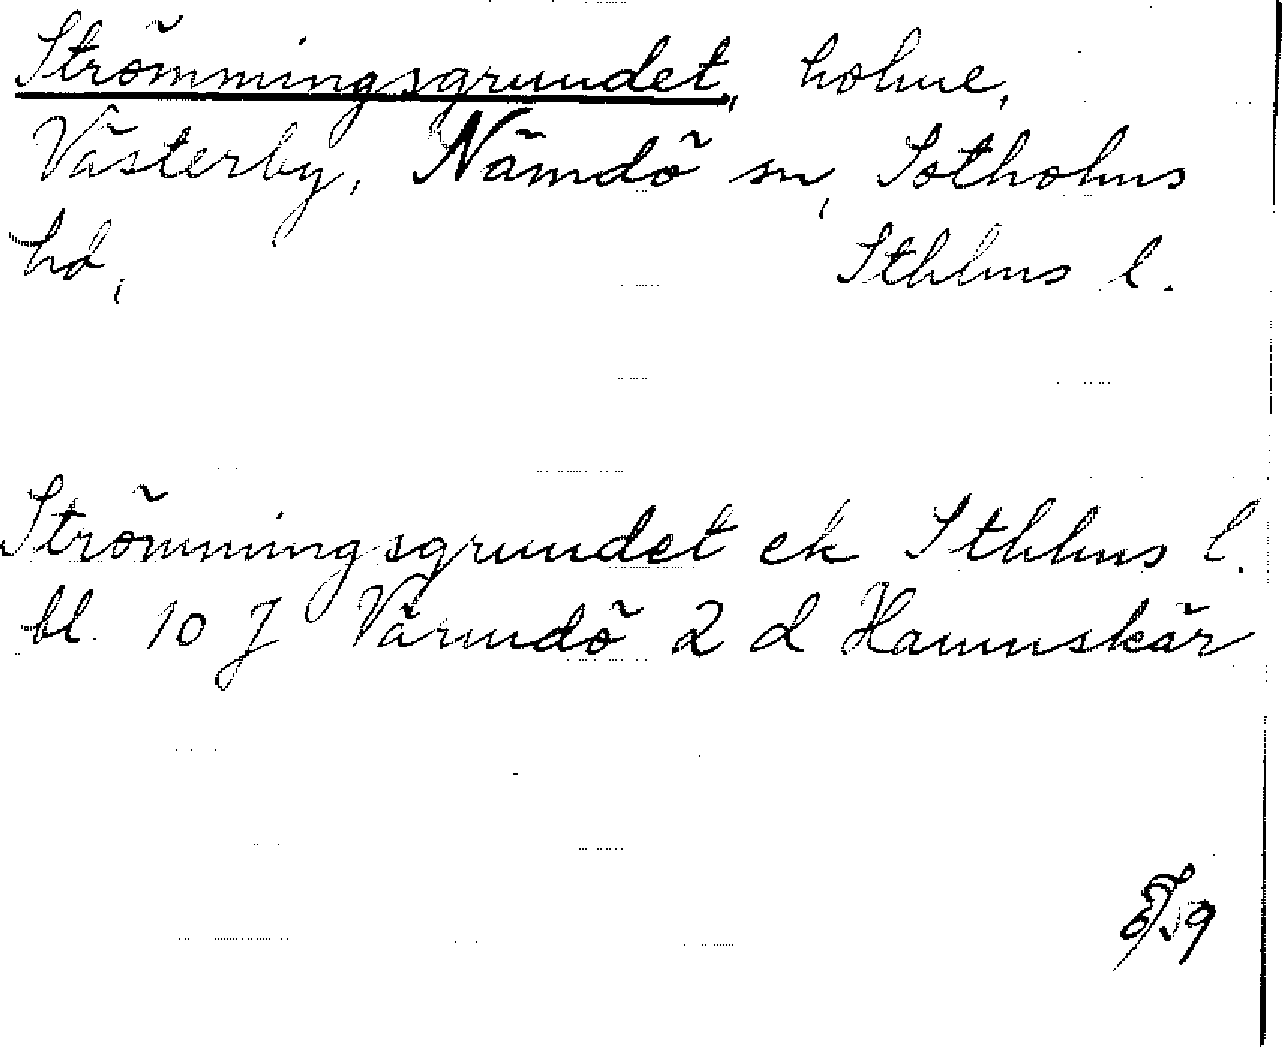 Strömmingsgrundet, holme,
Västerby, Nämdö sn, Sotholms
hd, Sthlms l.
Strömmingsgrundet ek Sthlms l.
bl. 10 J Värmdö 2 d Hamnskär